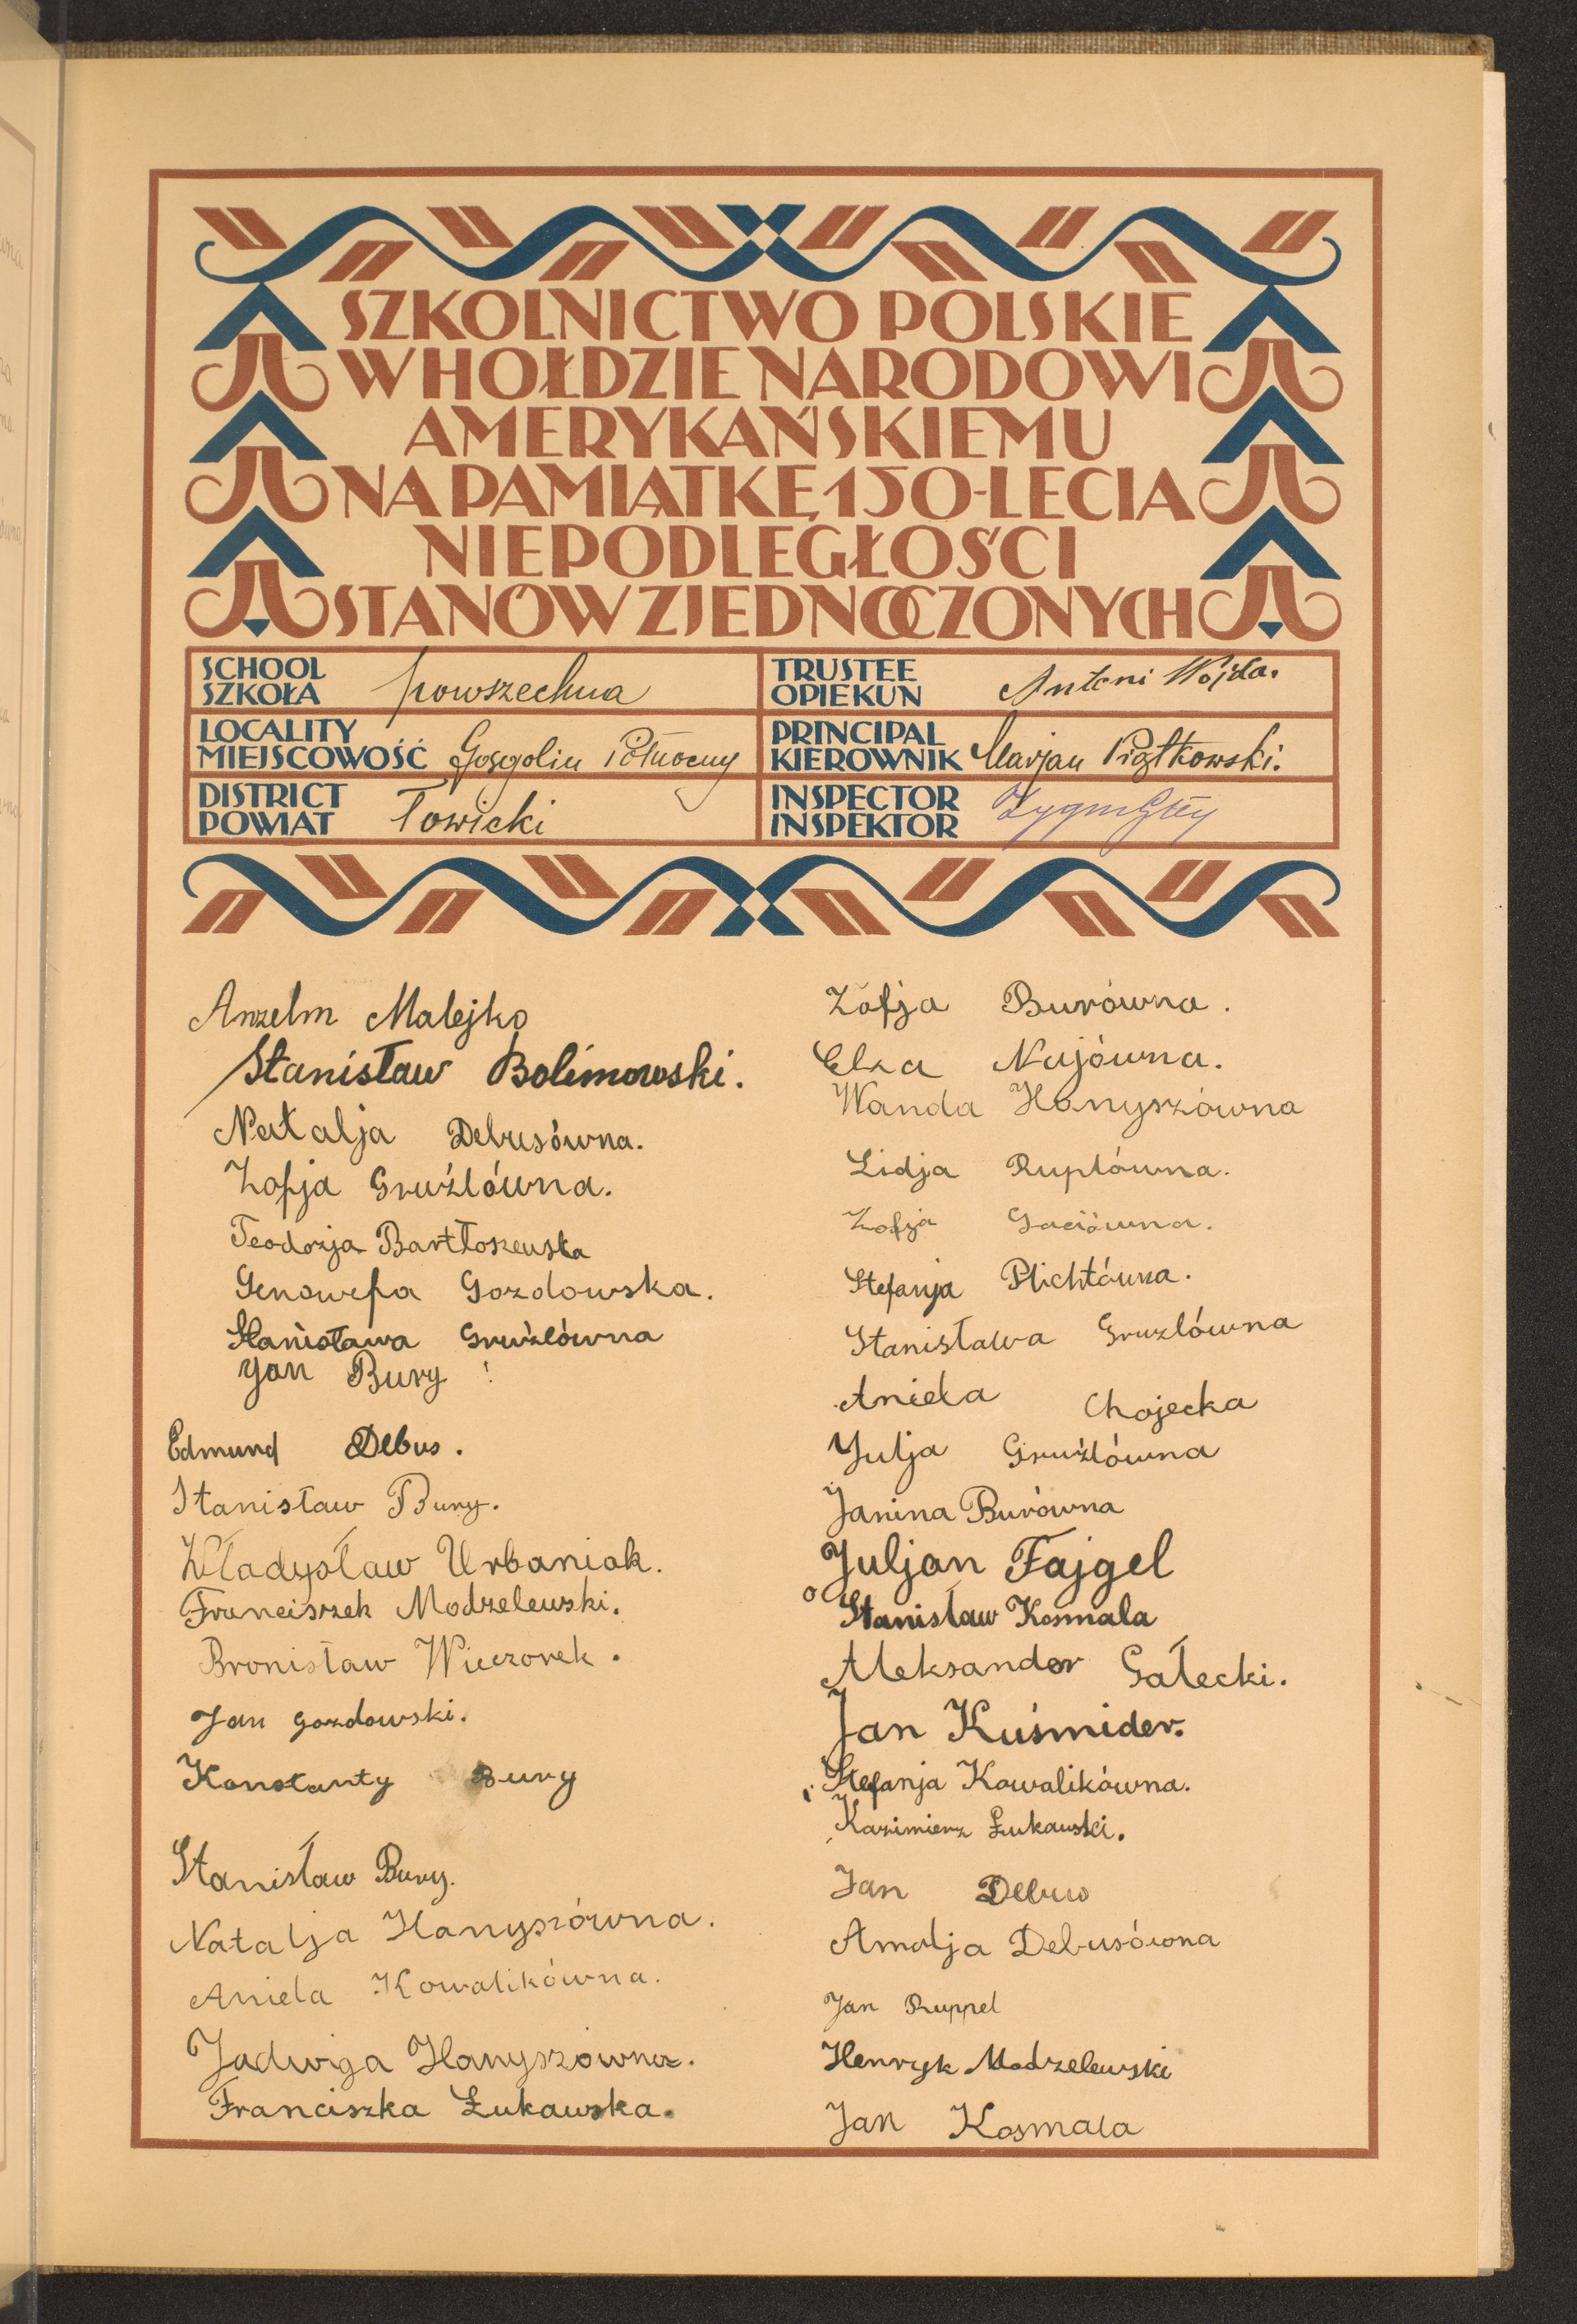 SZKOLNICTWO POLSKIE
W HOŁDZIE NARODOWI
AMERYKAŃSKIEMU
NA PAMIĄTKĘ 150-LECIA
NIEPODLEGŁOŚCI
STANÓW ZJEDNOCZONYCH
SCHOOL
SZKOŁA powszechna
TRUSTEE
OPIEKUN Antoni Wojda.
LOCALITY
MIEJSCOWOŚĆ Gągolin Północny
PRINCIPAL
KIEROWNIK Marjan Piątkowski.
DISTRICT
POWIAT Łowicki
INSPECTOR
INSPEKTOR
Anzelm Malejko
Stanisław Bolimowski.
Natalja Debusówna.
Zofja Gruźlówna.
Teodozja Bartłoszewska
Genowefa Gozdowska.
Stanisława Gruźlówna
Jan Bury
Edmund Debus.
Stanisław Bury.
Władysław Urbaniak.
Franciszek Modzelewski.
Bronisław Wieczorek.
Jan Gozdowski.
Konstanty Bury
Stanisław Bury.
Natalja Hanyszówna.
Aniela Kowalikówna.
Jadwiga Hanyszówna.
Franciszka Łukawska.
Zofja Burówna.
Elza Najówna.
Wanda Hanyszówna
Lidja Ruplówna.
Zofja Gaciówna.
Stefanja Plichtówna.
Stanisława Gruzlówna
Aniela Chojecka
Julja Gruźlówna
Janina Burówna
Juljan Fajgel
Stanisław Kosmala
Aleksander Gałecki.
Jan Kuśmider.
Stefanja Kowalikówna.
Kazimierz Łukawski.
Jan Debus
Amalja Debusówna
Jan Ruppel
Henryk Modzelewski
Jan Kosmala